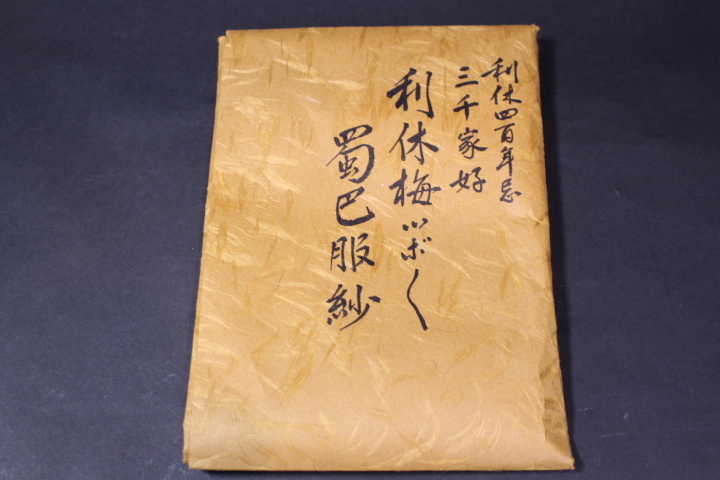 利休四百年忌
三千家好
利休梅つぼ〱
蜀巴服紗